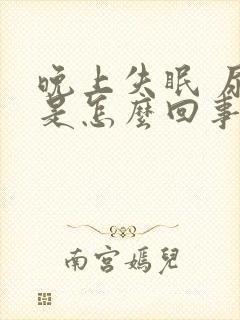 晚上失眠
是怎麼回事
南宮嫣兒